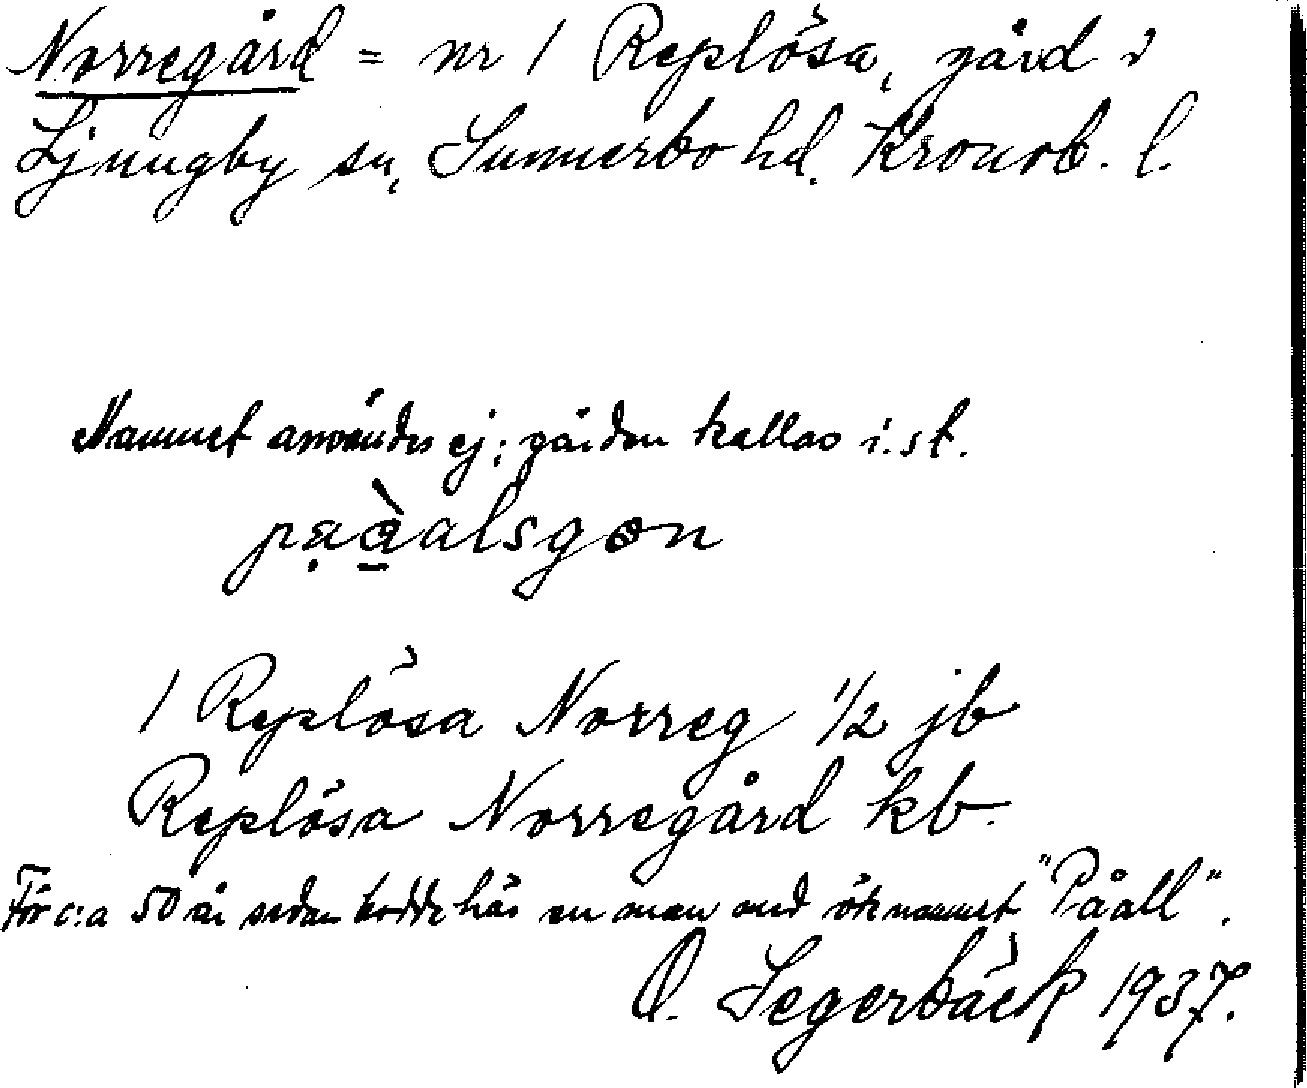 Norregård = nr 1 Replösa, gård i
Ljungby sn, Sunnerbo hd. Kronob. l.
Namnet användes ej; gården kallas i. st.
pa̤àalsgøn
1 Replösa Norreg 1/2 jb
Replösa Norregård kb.
För c:a 50 år sedan bodde här en man med öknamnet "Påall".
O. Segerbäck 1937.